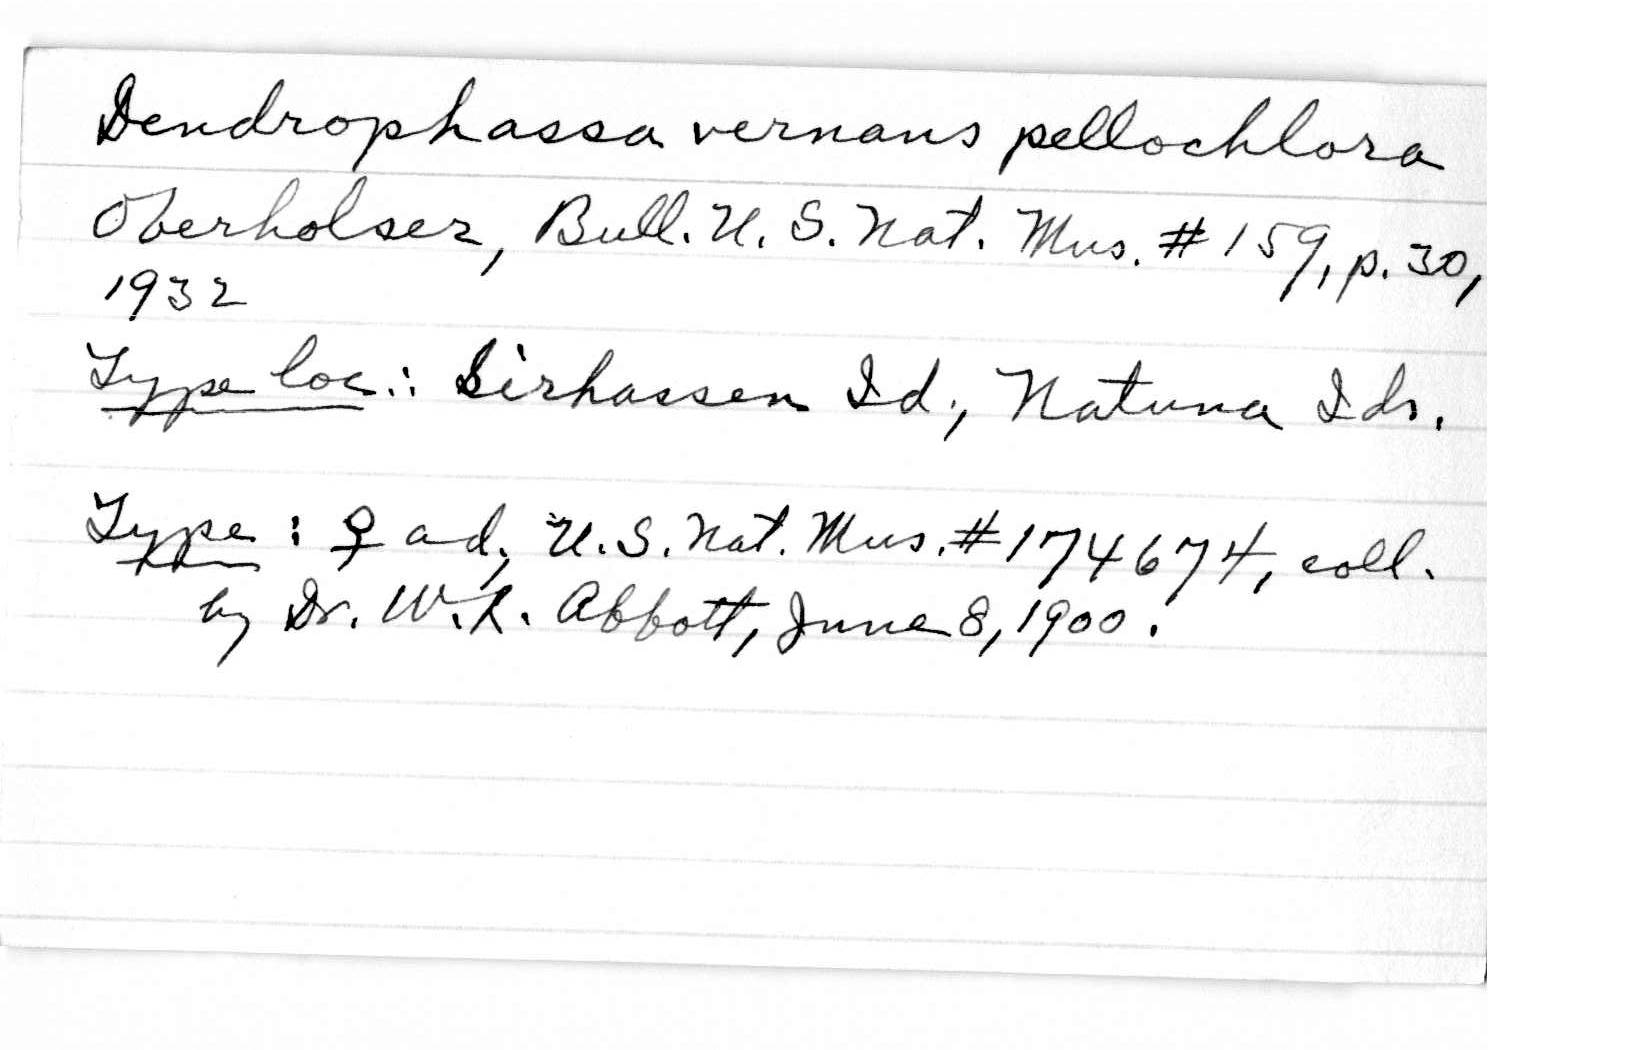 Dendrophassa vernans pellochlora
Oberholser, Bull. U. S. Nat. Mus. # 159, p. 30,
1932
Type loc.: Sirhassen Id., Natuna Ids.
Type: ♀ ad., U. S. Nat. Mus. # 174674, coll.
by Dr. W. L. Abbott, June 8, 1900.